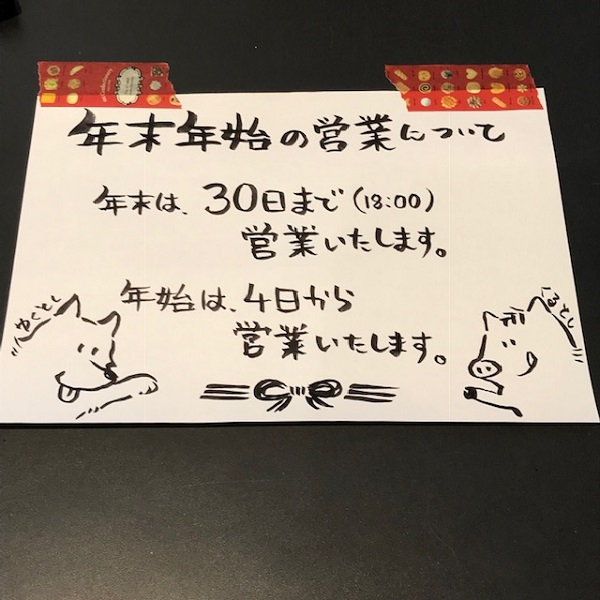 年末年始の営業について
年末は、30日まで(18:00)
営業いたします。
年始は、4日から
営業いたします。
ゆくとし
くるとし